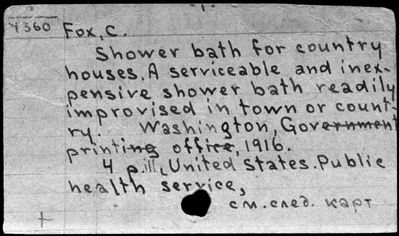 - 1 -
4360 Fox, C.
Shower bath for country
houses. A serviceable and inex-
pensive shower bath readily
improvised in town or count-
ry. Washington, Government
printing office, 1916.
4 p. ill., United States. Public
health service,
см. след. карт
+